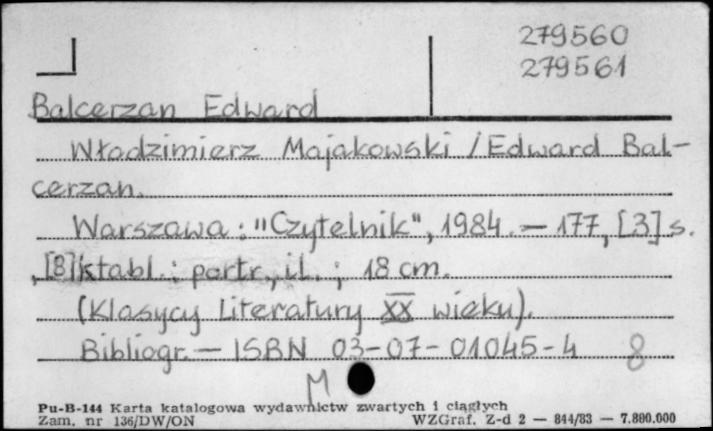 279560
279561
Balcerzan Edward
Włodzimierz Majakowski / Edward Bal-
cerzan.
Warszawa : "Czytelnik", 1984. — 177, [3] s.
, [8] k tabl. : portr., il. ; 18 cm.
(Klasycy Literatury XX wieku).
Bibliogr. — ISBN 03-07-01045-4 8
M
Pu-B-144 Karta katalogowa wydawnictw zwartych i ciągłych
Zam. nr 136/DW/ON WZGraf. Z-d 2 — 844/83 — 7.800.000